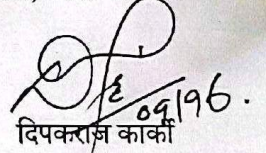 09/16.
दिपकराज कार्की